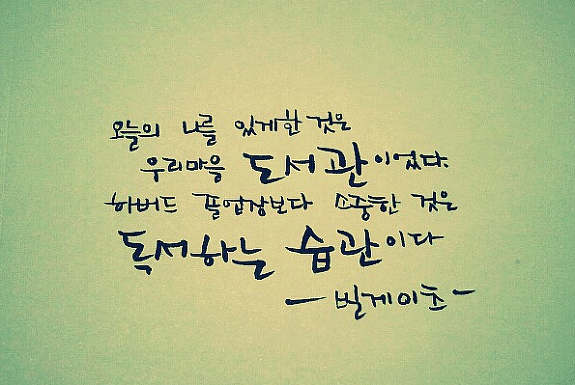 오늘의 나를 있게한 것은
우리마을 도서관이었다.
하버드 졸업장보다 소중한 것은
독서하는 습관이다
- 빌게이츠 -